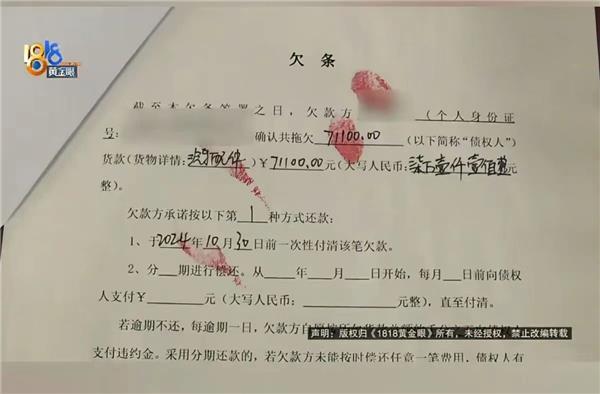 1818
黄金眼
欠 条
截至本欠条签署之日，欠款方 （个人身份证
号： 确认共拖欠71100.00（以下简称“债权人”）
货款（货物详情：配件）￥71100.00元（大写人民币：柒万壹仟壹佰元
整）。
欠款方承诺按以下第 1 种方式还款：
1、于2024年10月30日前一次性付清该笔欠款。
2、分___期进行偿还。从____年____月____日开始，每月___日前向债权
人支付￥________元（大写人民币：________元整），直至付清。
声明：版权归《1818黄金眼》所有，未经授权，禁止改编转载
若逾期不还，每逾期一日，欠款方自愿按所欠货款
支付违约金。采用分期还款的，若欠款方未能按时偿还任意一笔费用，债权人有